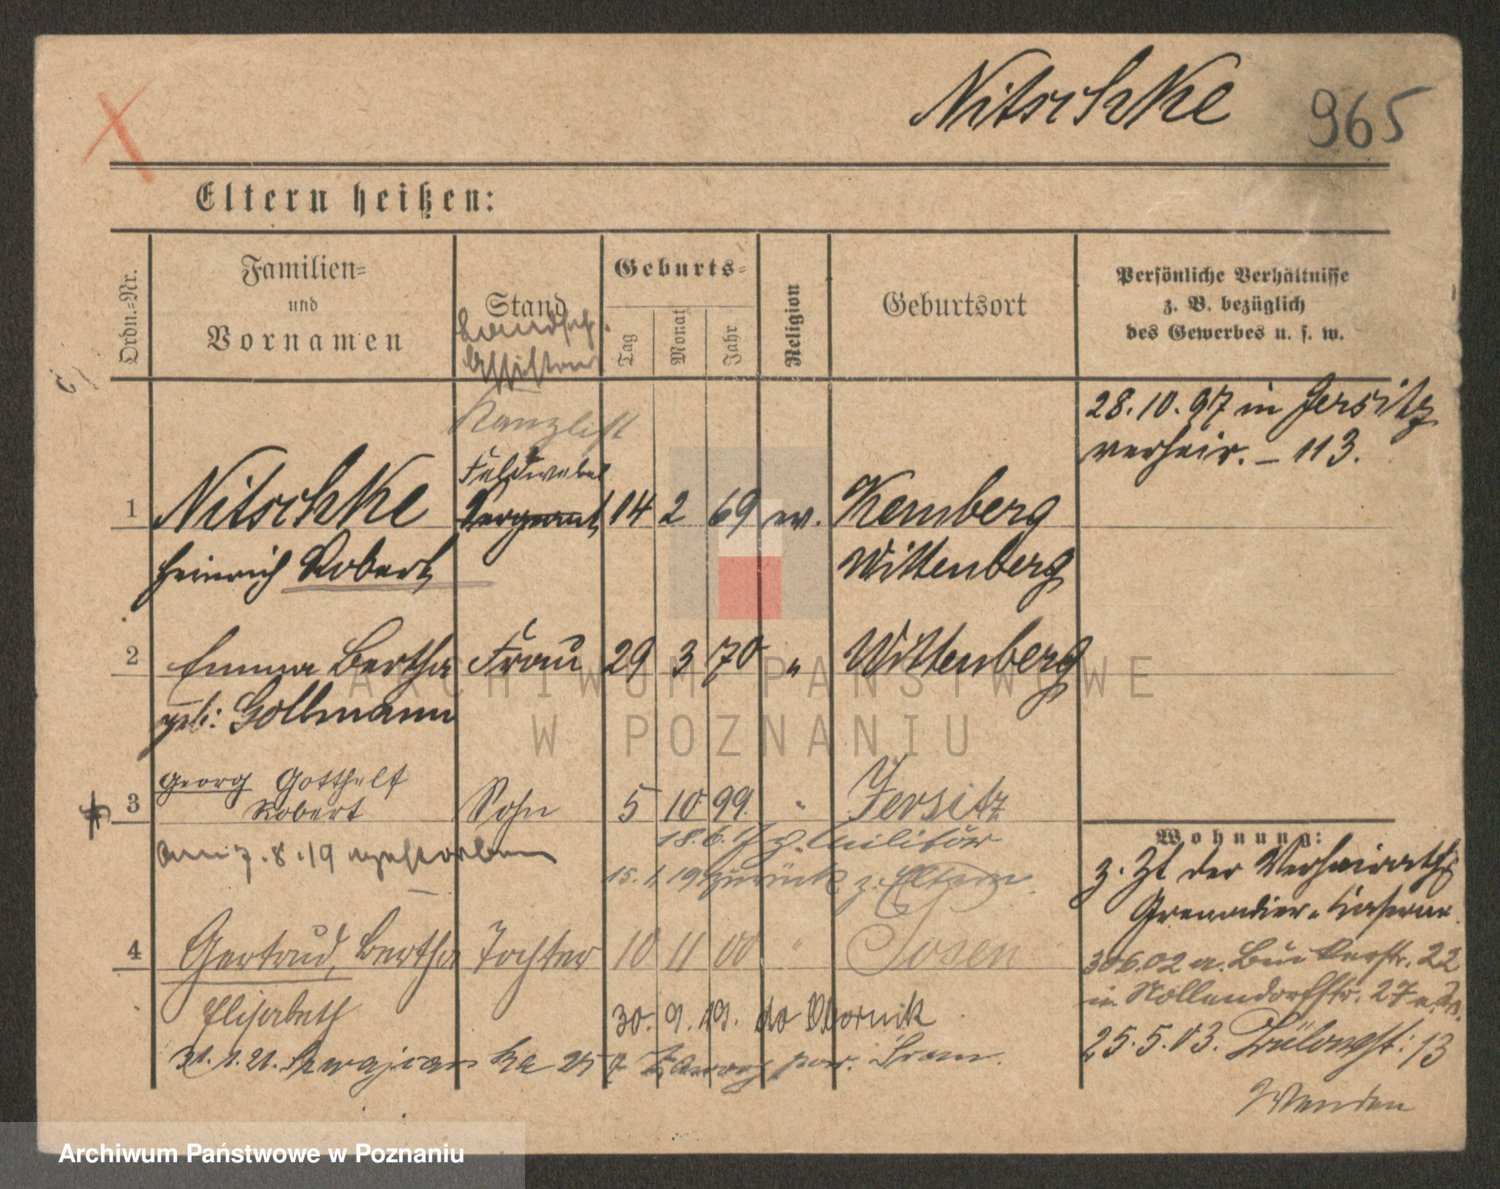 Nitschke 965
Eltern heißen:
Ordn.-Nr.
Familien-
und
Vornamen
Stand
Geburts-
Tag
Monat
Jahr
Religion
Geburtsort
Persönliche Verhältnisse
z. B. bezüglich
des Gewerbes u. s. w.
Kanzlist
28.10.97 in Jersitz
verheir. – 113.
Feldwebel
1 Nitschke Sergeant 14 2 69 ev. Kemberg
Heinrich Robert Wittenberg
2 Emma Bertha Frau 29 3 70 " Wittenberg
geb: Gollmann
3 Georg Gotthelf Robert Sohn 5 10 99 " Jersitz
18.6.17 z. Militär
am 7.8.19 verstorben
15.1.19 zurück z. Eltern.
Wohnung:
z. Zt der Verheirath.
Grenadier-Kaserne
4 Gertrud, Bertha Tochter 10 11 00 " Posen
Elisabeth
22
in Nollendorfstr. 27
30. 9. 19. do Obornik
25.5.03. 13
Wenden
ARCHIWUM PAŃSTWOWE
W POZNANIU
Archiwum Państwowe w Poznaniu